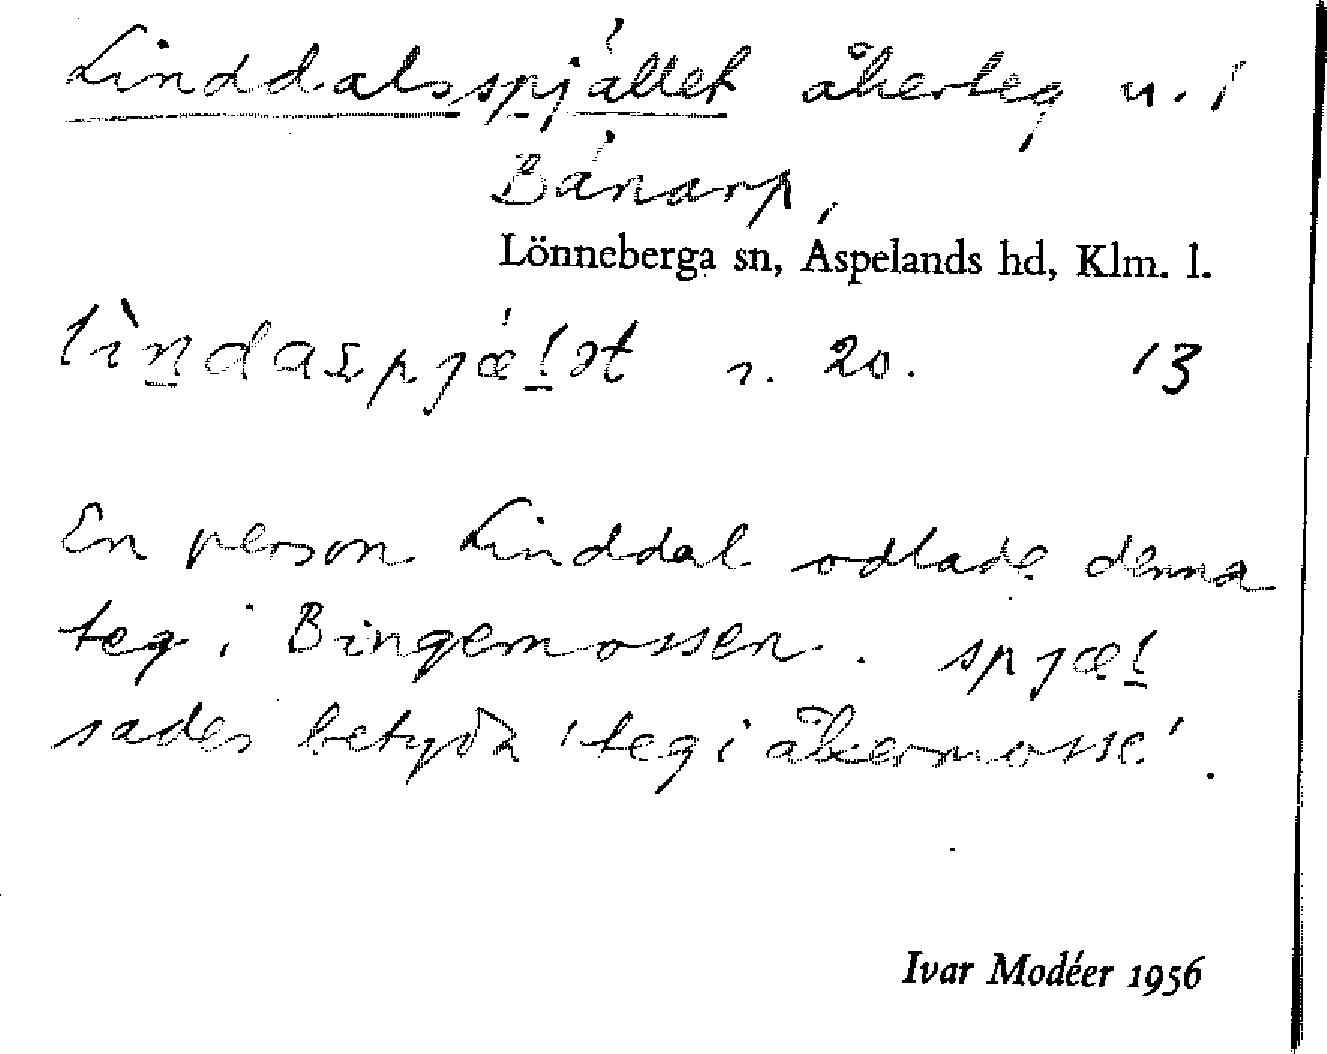 Linddalsspjället åkerteg n. i
Bånarp,
Lönneberga sn, Aspelands hd, Klm. l.
lìndaspjæ̀lət n. 20. 13
En person Linddal odlade denna
teg i Bingemossen. spjæl
sades betyda 'teg i åkermosse'.
Ivar Modéer 1956